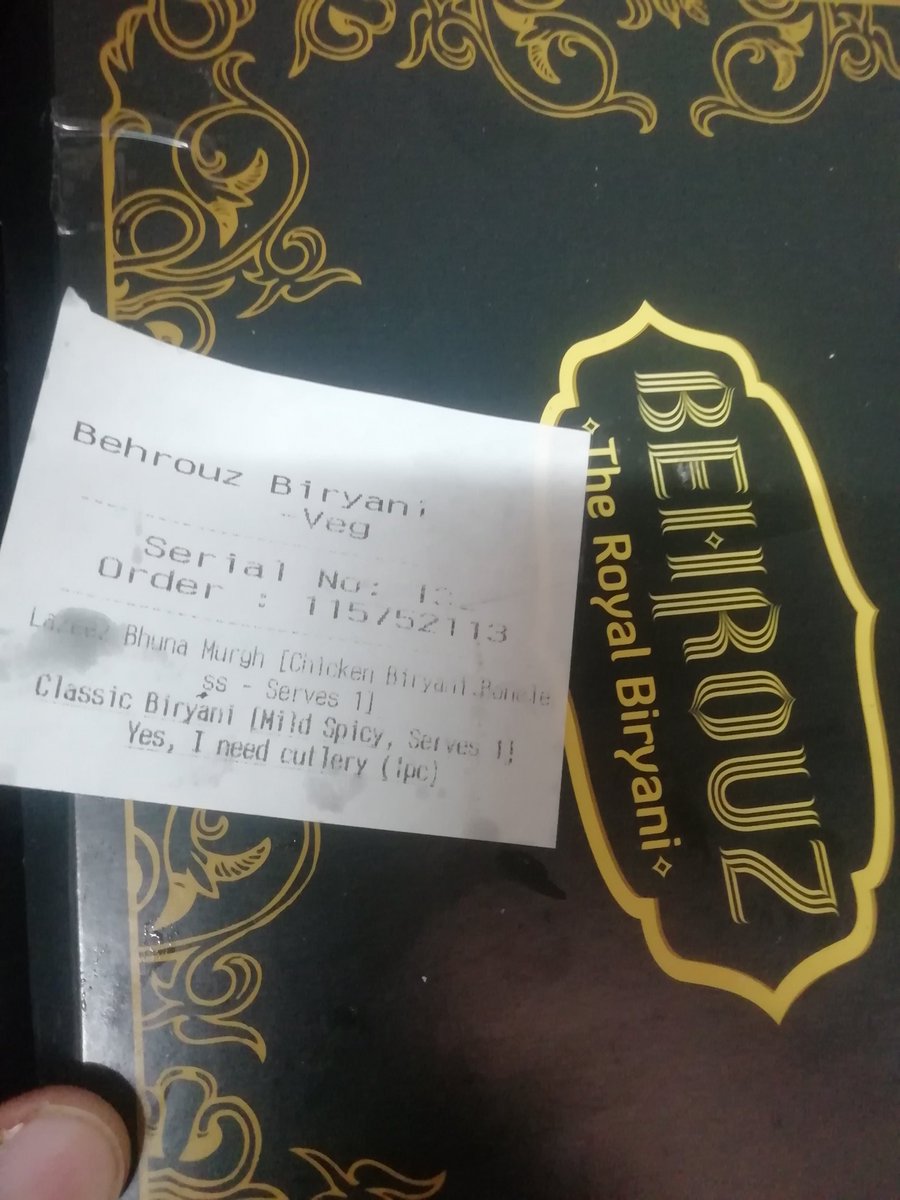 Behrouz Biryani
-Veg
Serial No:
Order : 115752113
Bhuna Murgh [Chicken Biryani
ss - Serves 1]
Classic Biryani [Mild Spicy, Serves 1]
Yes, I need cutlery (1pc)
BEHROUZ
The Royal Biryani